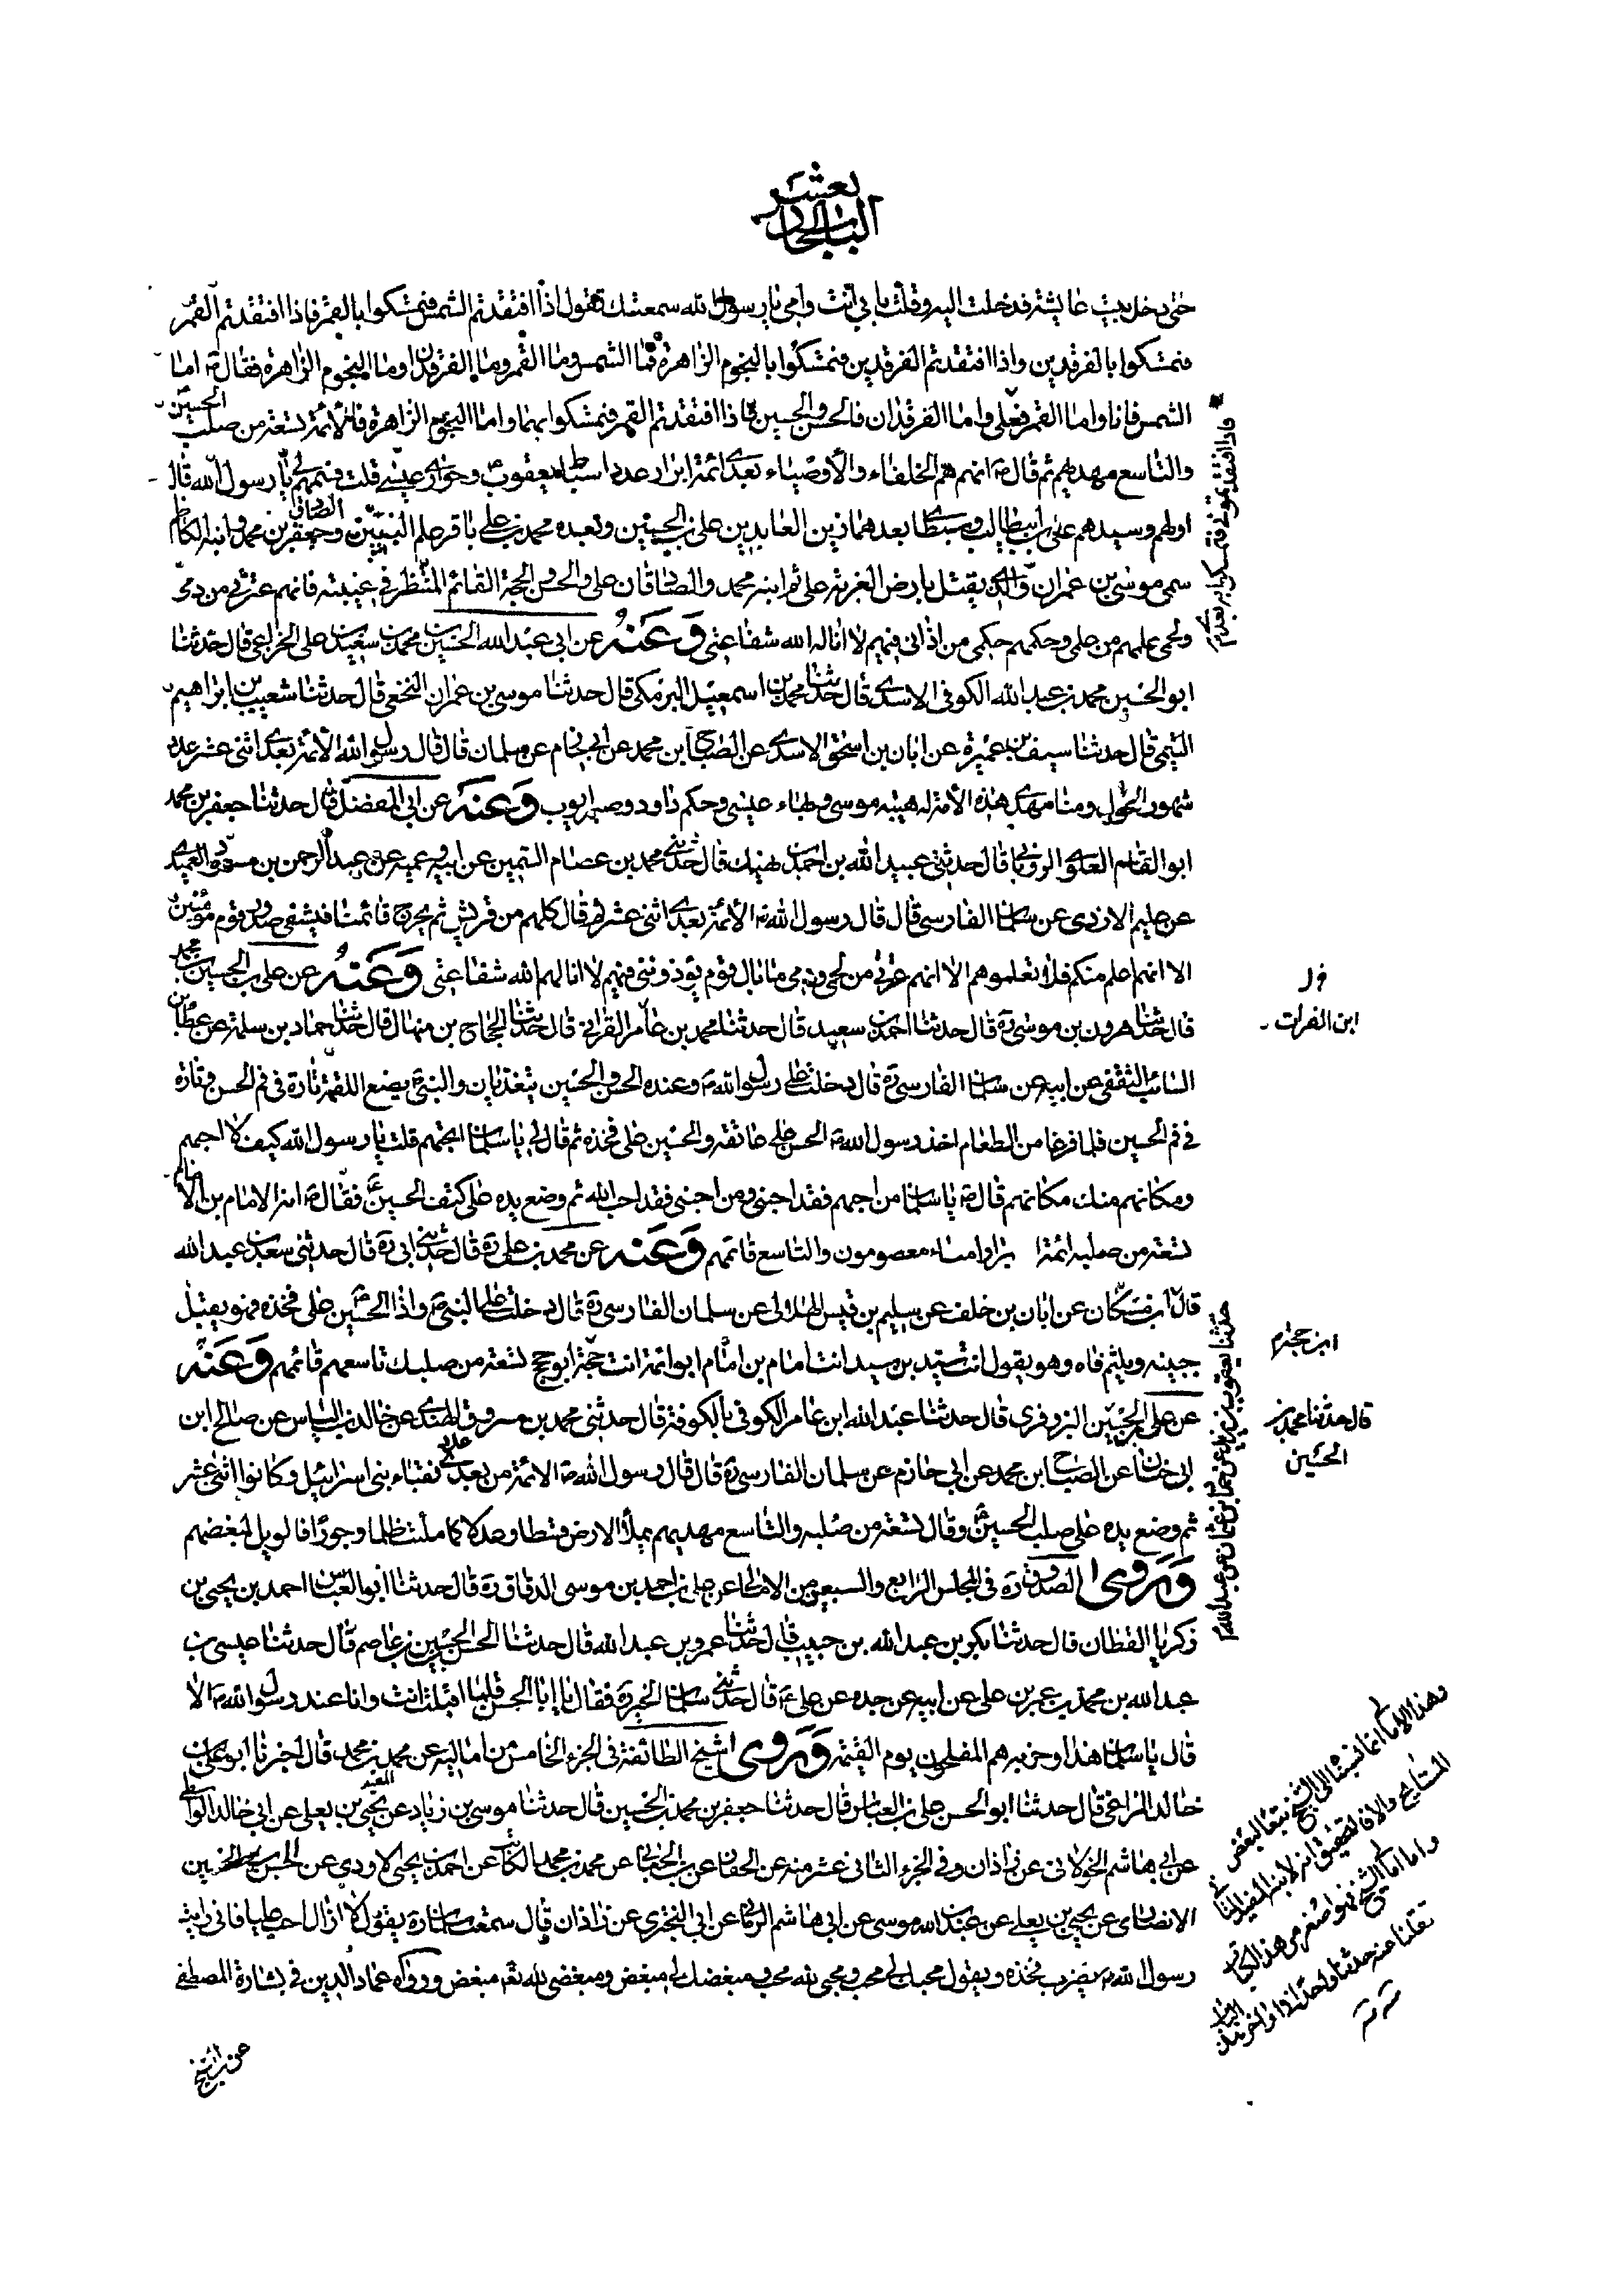 الباب الحادي عشر
حتى دخل بيت عايشة فدخلت اليه وقلت بابي انت وامي يا رسول الله سمعتك تقول اذا افتقدتم الشمس فتمسكوا بالقمر فاذا افتقدتم القمر
فتمسكوا بالفرقدين واذا افتقدتم الفرقدين فتمسكوا بالنجوم الزاهرة فما الشمس وما القمر وما الفرقدان وما النجوم الزاهرة فقال ص اما
الشمس فانا واما القمر فعلي واما الفرقدان فالحسن والحسين فاذا افتقدتم القمر فتمسكوا بهما واما النجوم الزاهرة فالائمة تسعة من صلب الحسين
والتاسع مهديهم ثم قال ص انهم هم الخلفاء والاوصياء بعدي ائمة ابرار عدد اسباط يعقوب وحواري عيسى قلت فسمهم لي يا رسول الله قال
اولهم وسيدهم علي بن ابيطالب وسبطاي بعدهما زين العابدين علي بن الحسين وبعده محمد بن علي باقر علم النبيين وجعفر بن محمد الصادق وابنه الكاظم
سمي موسى بن عمران والذي يقتل بارض الغربة علي ثم ابنه محمد والصادقان علي والحسن والحجة القائم المنتظر في غيبته فانهم عترتي من دمي
ولحمي علمهم من علمي وحكمهم حكمي من اذاني فيهم لا اناله الله شفاعتي وعنه عن ابي عبد الله الحسين بن محمد بن سعيد بن علي الخزاعي قال حدثنا
ابو الحسين محمد بن عبد الله الكوفي الاسدي قال حدثنا محمد بن اسمعيل البرمكي قال حدثنا موسى بن عمران النخعي قال حدثنا شعيب بن ابراهيم
التيمي قال حدثنا سيف بن عميرة عن ابان بن اسحق الاسدي عن الصباح ابن محمد عن ابي حازم عن سلمان قال قال رسول الله الائمة بعدي اثنى عشر عدد
شهور الحول ومنا مهدي هذه الامة له هيبة موسى وبهاء عيسى وحكم داود وصبر ايوب وعنه عن ابي المفضل قال حدثنا جعفر بن محمد
ابو القاسم العلوي قال حدثني عبيد الله بن احمد بن نهيك قال حدثني محمد بن عصام السمين عن ابيه وعمه عن عبد الرحمن بن مسعود العبدي
عن عليم الازدي عن سلمان الفارسي قال قال رسول الله ص الائمة بعدي اثنى عشر ثم قال كلهم من قريش ثم يخرج قائمنا فيشفي صدور قوم مؤمنين
الا انهم اعلم منكم فلا تعلموهم الا انهم عترتي من لحمي ودمي ما بال قوم يؤذونني فيهم لا انالهم الله شفاعتي وعنه عن علي بن الحسين بن محمد
قال حدثنا هرون بن موسى ره قال حدثنا احمد بن سعيد قال حدثنا محمد بن عامر القرائي قال حدثنا الحجاج بن منهال قال حدثنا حماد بن سلمة عن عطا بن
السائب الثقفي عن ابيه عن سلمان الفارسي ره قال دخلت على رسول الله ص وعنده الحسن والحسين يتغذيان والنبي ص يضع اللقمة تارة في فم الحسن وتارة
في فم الحسين فلما فرغا من الطعام اخذ رسول الله ص الحسن على عاتقه والحسين على فخذه ثم قال لي يا سلمان اتحبهم قلت يا رسول الله كيف لا احبهم
ومكانهم منك مكانهم قال ص يا سلمان من احبهم فقد احبني ومن احبني فقد احب الله ثم وضع يده على كتف الحسين ع فقال ص انه الامام بن الامام
تسعة من صلبه ائمة ابرار امناء معصومون والتاسع قائمهم وعنه عن محمد بن علي ره قال حدثني ابي ره قال حدثني سعد بن عبد الله
قال ابن مسكان عن ابان بن خلف عن سليم بن قيس الهلالي عن سلمان الفارسي ره قال دخلت على النبي ص واذا الحسين على فخذه وهو يقبل
جبينه ويلثم فاه وهو يقول انت سيد بن سيد انت امام بن امام ابو ائمة انت حجة ابو حجج تسعة من صلبك تاسعهم قائمهم وعنه
عن علي بن الحسين البزوفري قال حدثنا عبد الله ابن عامر الكوفي بالكوفة قال حدثني محمد بن مسروق النهدي عن خالد بن الياس عن صالح ابن
ابي حسان عن الصباح ابن محمد عن ابي حازم عن سلمان الفارسي ره قال قال رسول الله ص الائمة من بعدي عدد نقباء بني اسرائيل وكانوا اثنى عشر
ثم وضع يده على صلب الحسين وقال تسعة من صلبه والتاسع مهديهم يملأ الارض قسطا وعدلا كما ملئت ظلما وجورا فالويل لمبغضهم
وروى الصدوق ره في المجلس الرابع والسبعين من الامالي عن علي بن احمد بن موسى الدقاق ره قال حدثنا ابو العباس احمد بن يحيى بن
زكريا القطان قال حدثنا بكر بن عبد الله بن حبيب قال حدثنا عمرو بن عبد الله قال حدثنا الحسن بن الحسين بن عاصم قال حدثنا عيسى بن
عبد الله بن محمد بن عمر بن علي عن ابيه عن جده عن علي ع قال حدثني سلمان الخير ره فقال يا ابا الحسن قلما اقبلت انت وانا عند رسول الله ص الا
قال يا سلمان هذا وحزبه هم المفلحون يوم القيمة وروى شيخ الطائفة في الجزء الخامس من اماليه عن محمد بن محمد قال اخبرنا ابو علي بن
خالد المراغي قال حدثنا ابو الحسن علي بن العباس قال حدثنا جعفر بن محمد بن الحسين قال حدثنا موسى بن زياد عن يحيى بن يعلى عن ابي خالد الواسطي
عن ابي هاشم الخولاني عن زاذان وفي الجزء الثاني عشر منه عن الحفار عن بن الجعابي عن محمد بن محمد الكاتب عن احمد بن يحيى الاودي عن الحسن بن الحسين
الانصاري عن يحيى بن يعلى عن عبيد الله موسى عن ابي هاشم الرماني عن ابي البختري عن زاذان قال سمعت سلمان ره يقول لا ازال احب عليا فاني رايت
رسول الله ص يضرب فخذه ويقول محبك لي محب ومحبي لله محب ومبغضك لي مبغض ومبغضي لله تعم مبغض ورواه عماد الدين في بشارة المصطفى
فاذا افتقدتموني فتمسكوا به بعدي
ابن الفرات
حدثنا يعقوب بن يزيد عن حماد بن عثمان عن عبد الله
قال حدثنا محمد بن
الحسين
عن الشيخ